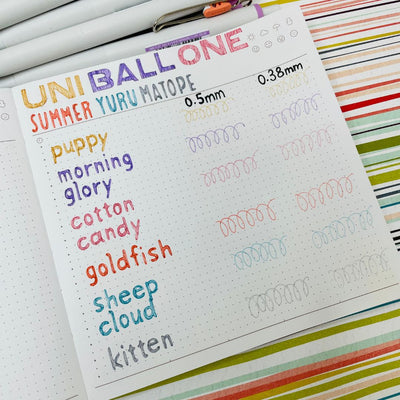 UNI BALL ONE
SUMMER YURU MATOPE
0.5mm 0.38mm
puppy
morning
glory
cotton
candy
goldfish
sheep
cloud
kitten